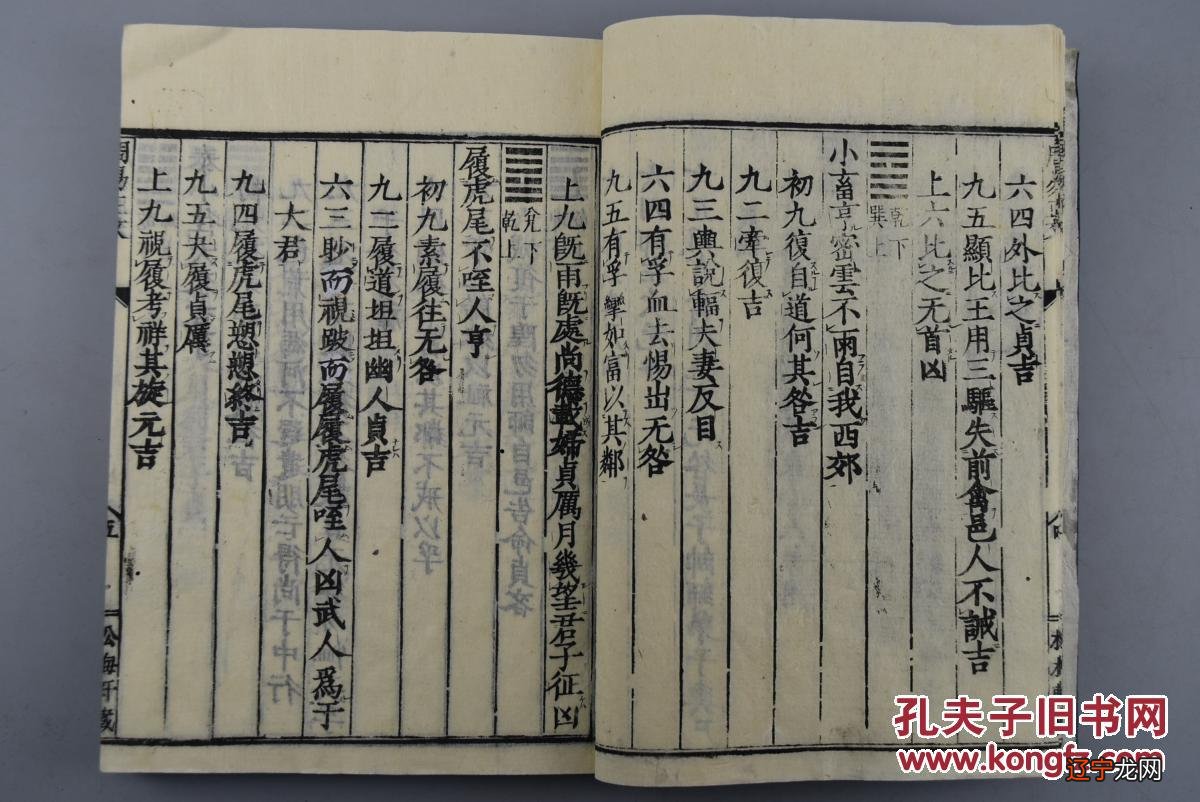 六四外比之貞吉
九五顯比王用三驅失前禽邑人不誡吉
上六比之无首凶
乾下
巽上
小畜亨密雲不雨自我西郊
初九復自道何其咎吉
九二牽復吉
九三輿說輻夫妻反目
六四有孚血去惕出无咎
九五有孚攣如富以其鄰
上九既雨既處尚德載婦貞厲月幾望君子征凶
兌下
乾上
履虎尾不咥人亨
初九素履往无咎
九二履道坦坦幽人貞吉
六三眇而視跛而履履虎尾咥人凶武人爲于
大君
九四履虎尾愬愬終吉
九五夬履貞厲
上九視履考祥其旋元吉
五
孔夫子旧书网
www.kongfz.com
辽宁龙网